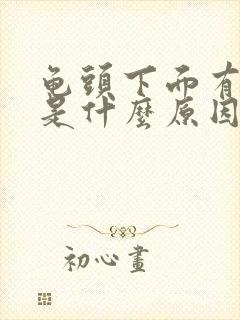 龟頭下而有
是什麼原因
初心畫